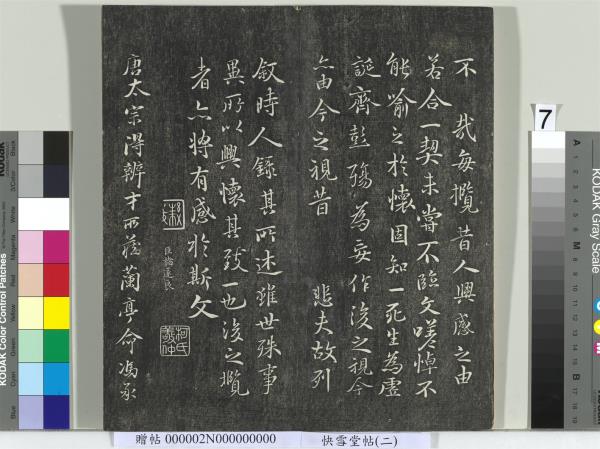 不 哉每攬昔人興感之由
若合一契未嘗不臨文嗟悼不
能喻之於懷固知一死生為虛
誕齊彭殤為妄作後之視今
亦由今之視昔 悲夫故列
敘時人錄其所述雖世殊事
異所以興懷其致一也後之攬
者亦將有感於斯文
臣褚遂良
柯氏敬仲
唐太宗得辨才所藏蘭亭命馮承
7
KODAK Color Control Patches
Blue
Cyan
Green
Yellow
Red
Magenta
White
3/Color
Black
KODAK Gray Scale
A 1 2 3 4 5 6 M 8 9 10 11 12 13 14 15 B 17 18 19
C
Y
M
贈帖 000002N000000000 快雪堂帖(二)